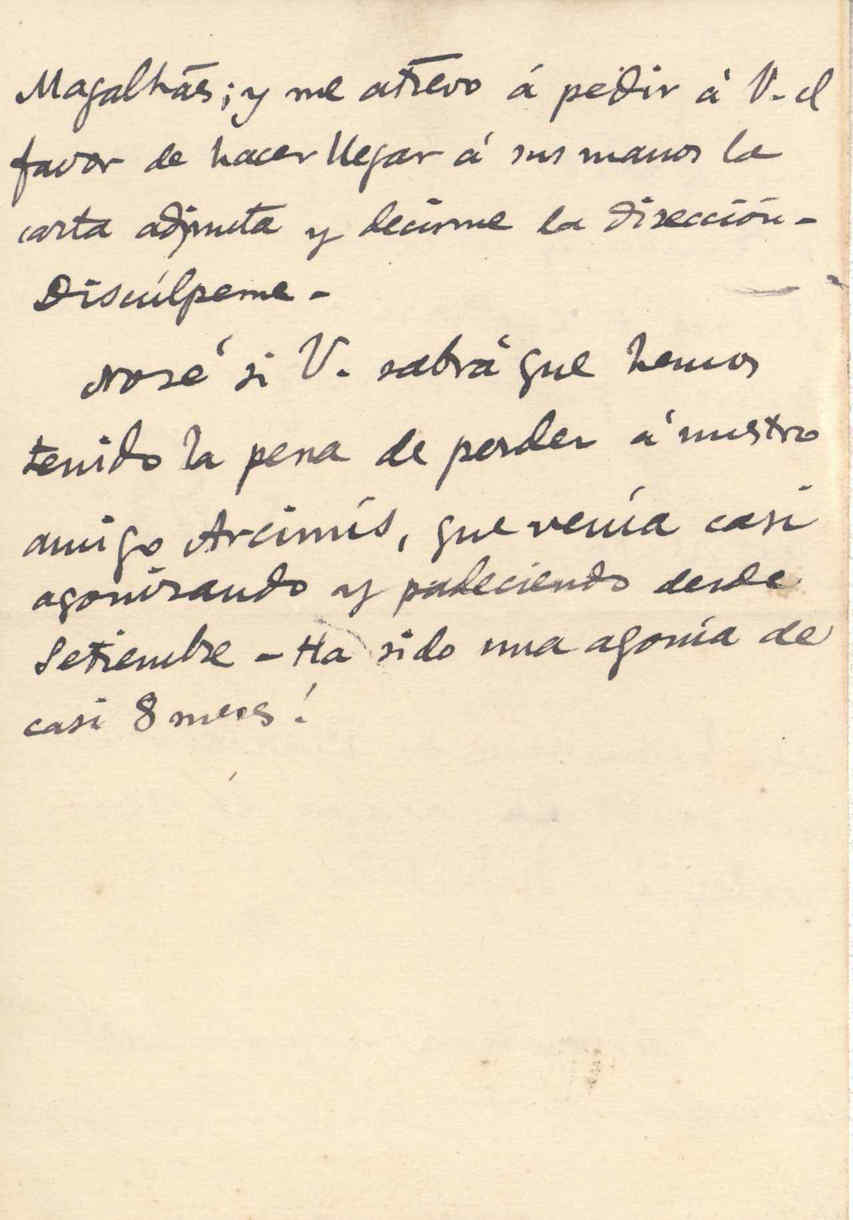 Magalhães; y me atrevo á pedir á V. el
favor de hacer llegar á sus manos la
carta adjunta y decirme la dirección -
Discúlpeme -
No sé si V. sabrá que hemos
tenido la pena de perder á nuestro
amigo Arcimís, que venía casi
agonizando y padeciendo desde
Setiembre - Ha sido una agonía de
casi 8 meses!